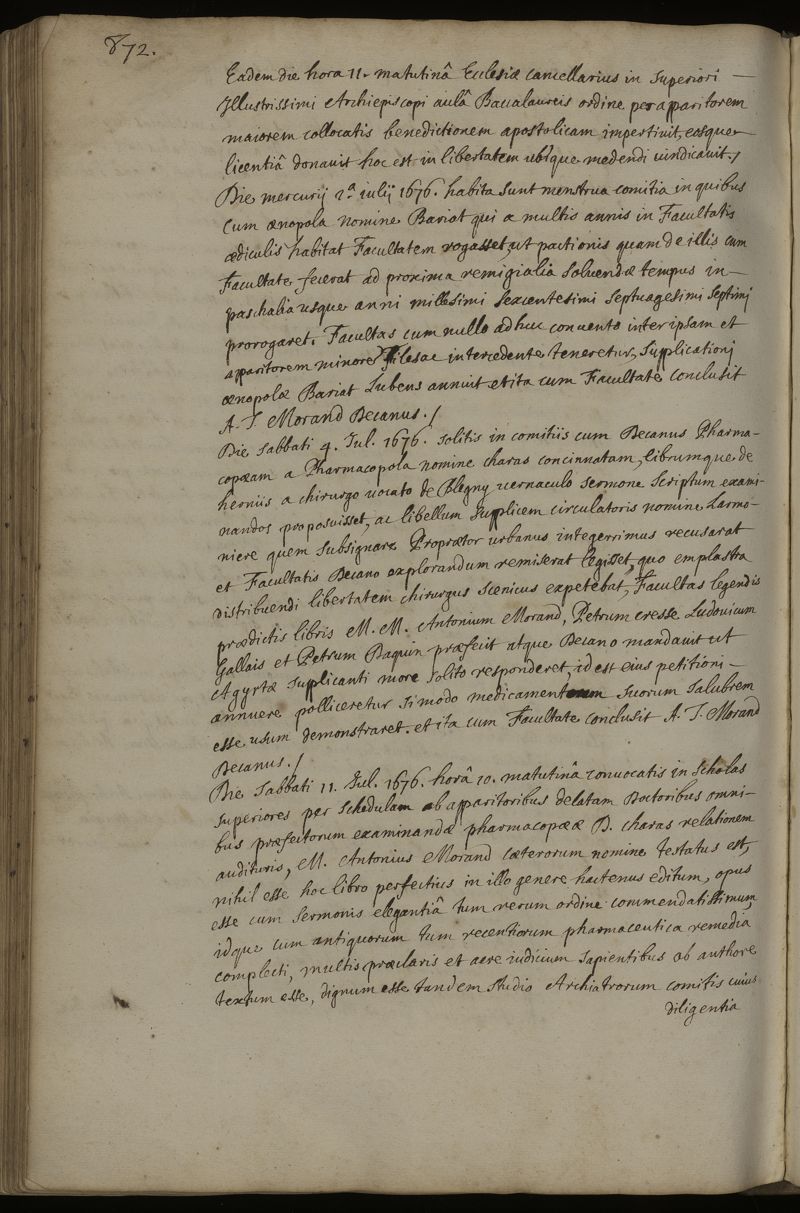 872.
Eadem die hora 11. matutinâ Ecclesiæ cancellarius in superiori
Illustrissimi Archiepiscopi aulâ Baccalaureis ordine per apparitorem
maiorem collocatis benedictionem apostolicam impertivit, eosque
licentiâ donavit hoc est in libertatem ubique medendi vindicavit./
Die mercurij 1.ª iulij 1676. habita sunt menstrua comitia in quibus
cum œnopola nomine Bariat qui a multis annis in Facultatis
ædiculis habitat Facultatem rogasset, ut pactionis quam de illis cum
Facultate fecerat ad proxima remigialia solvendæ tempus in
paschalia usque anni millesimi sexcentesimi septuagesimi septimi
prorogaret. Facultas cum nullo adhuc conuento inter ipsam et
apparitorem minorem filesac intercedente teneretur, supplicationj
œnopolæ Bariat lubens annuit et ita cum Facultate conclusit
A. J. Morand Decanus./
Die sabbati 4. Jul. 1676. solitis in comitiis cum Decanus Pharma-
copæam a Pharmacopola nomine charas concinnatam, librumque de
herniis a chirurgo vocato de Blegny vernaculo sermone scriptum exami-
nandos proposuisset, ac libellum supplicem circulatoris nomine Larmo-
niere quem subsignare Proprætor urbanus integerrimus recusarat
et Facultatis Decano explorandum remiserat legisset, quo emplastra
distribuendi libertatem chirurgus scenicus expetebat, Facultas legendis
prædictis libris M. M. Antonium Morand, Petrum cresse Ludovicum
Gallais et Petrum Daquin præfecit atque Decano mandavit ut
Agyrtæ supplicanti more solito responderet, id est eius petitioni
annuere polliceretur si modo medicamentorum suorum salubrem
esse usum demonstraret. et ita cum Facultate conclusit A. J. Morand
Decanus./
Die sabbati 11. Jul. 1676. horâ 10. matutinâ convocatis in scholas
superiores per schedulam ab apparitoribus delatam Doctoribus omni-
bus præfectorum examinandæ pharmacopææ D. charas relationem
audituris, M. Antonius Morand cæterorum nomine testatus est,
nihil esse hoc libro perfectius in illo genere hactenus editum, opus
esse cum sermonis elegantiâ tum rerum ordine commendatissimum,
idque cum antiquorum tum recentiorum pharmaceutica remedia
complecti, multis præclaris et acre iudicium sapientibus ab authore
textum esse, dignum esse tandem studio Archiatrorum comitis cuius
diligentia